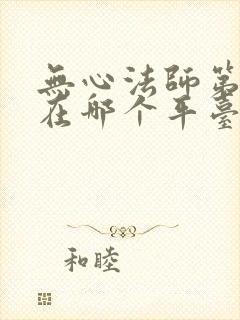 無心法師第
在哪个平臺
和睦